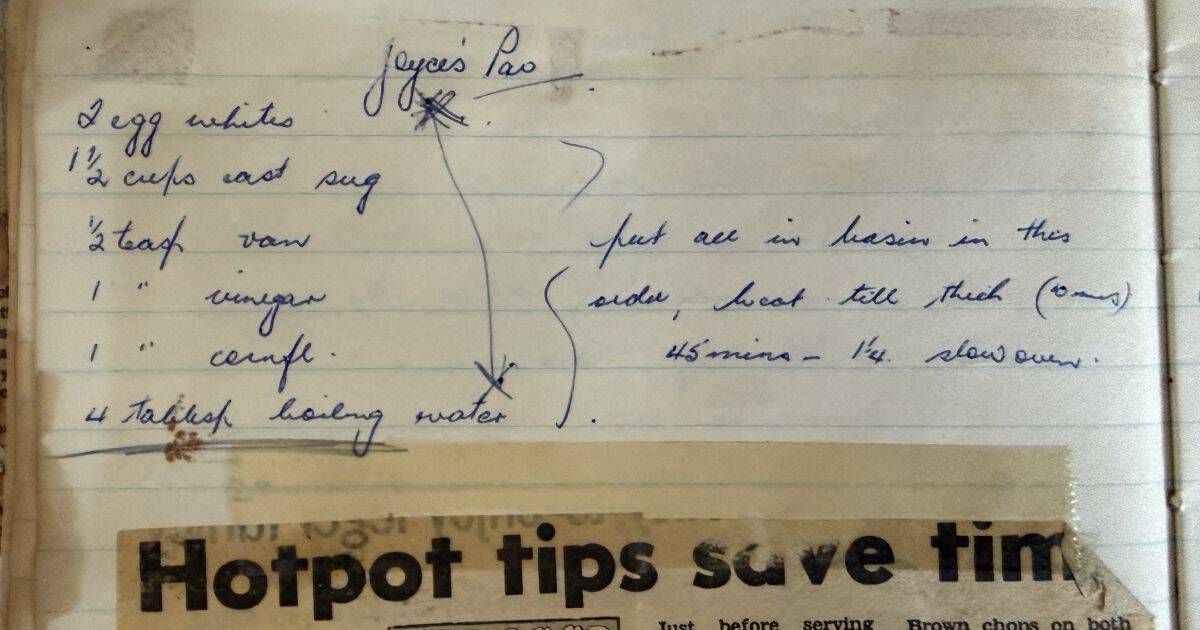 Joyce's Pav
2 egg whites
1 1/2 cups cast sug
1/2 teasp van
1 " vinegar
1 " cornfl.
4 tablesp boiling water
put all in basin in this
order, beat till thick
45 mins - 1 1/4 slow oven.
Hotpot tips save tim
Just before serving
Brown chops on both